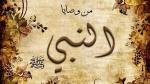 من وصايا
النبي
ﷺ